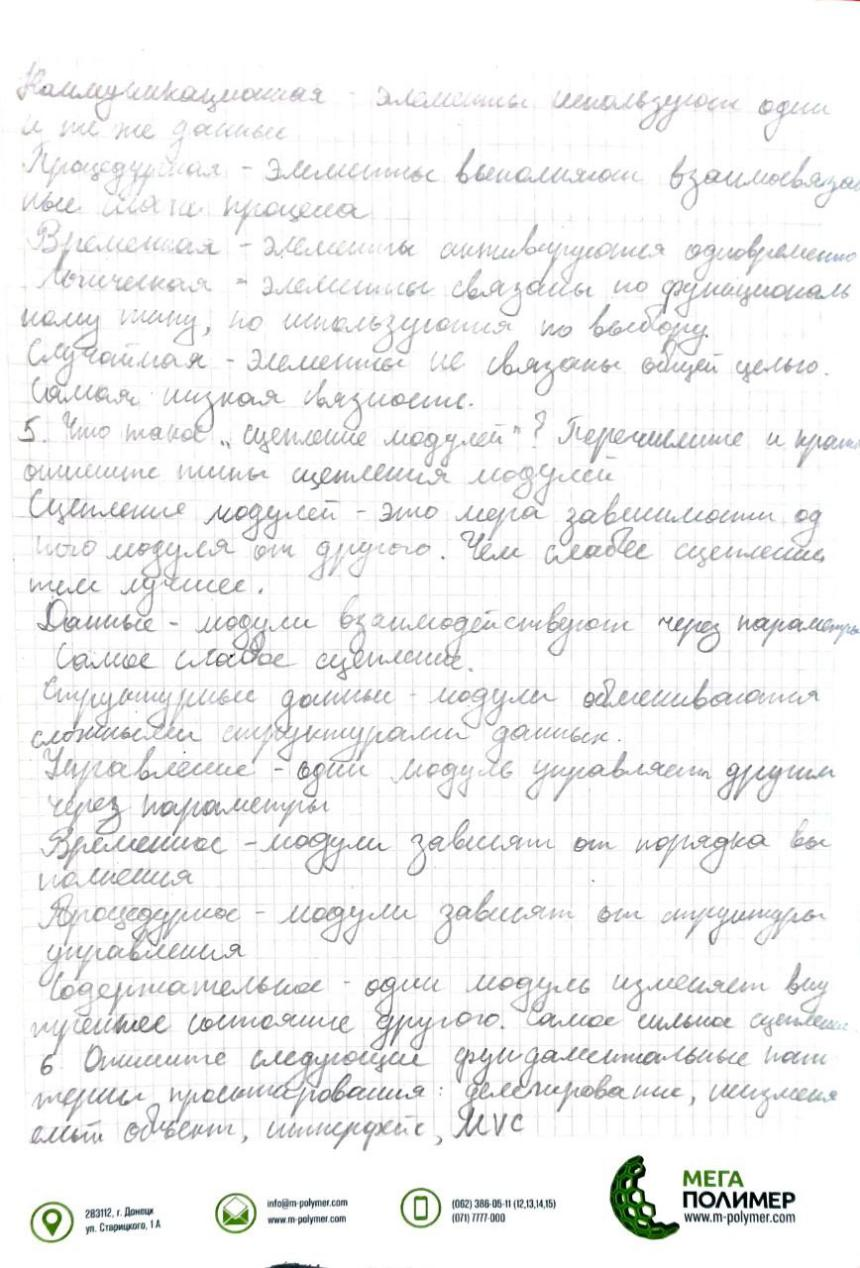 Коммуникационная - элементы используют одни
и те же данные
Процедурная - элементы выполняют взаимосвязан
ные шаги процеса
Временная - элементы активируются одновременно
Логическая - элементы связаны по функциональ
ному типу, но используются по выбору.
Случайная - элементы не связаны общей целью.
Самая низкая связность.
5. Что такое „сцепление модулей"? Перечислите и кратко
опишите типы сцепления модулей
Сцепление модулей - это мера зависимости од
ного модуля от другого. Чем слабее сцепление
тем лучшее.
Данные - модули взаимодействуют через параметры
Самое слабое сцепление.
Структурные данные - модули обмениваются
сложными структурами данных.
Управление - один модуль управляет другим
через параметры
Временное - модули зависят от порядка вы
полнения
Процедурное - модули зависят от структуры
управления
Содержательное - один модуль изменяет вну
треннее состояние другого. Самое сильное сцепление.
6 Опишите следующие фундаментальные пат
терны проектирования: делегирование, неизменя
емый объект, интерфейс, MVC
283112, г. Донецк
ул. Старицкого, 1 А
info@m-polymer.com
www.m-polymer.com
(062) 386-05-11 (12,13,14,15)
(071) 7777-000
МЕГА
ПОЛИМЕР
www.m-polymer.com